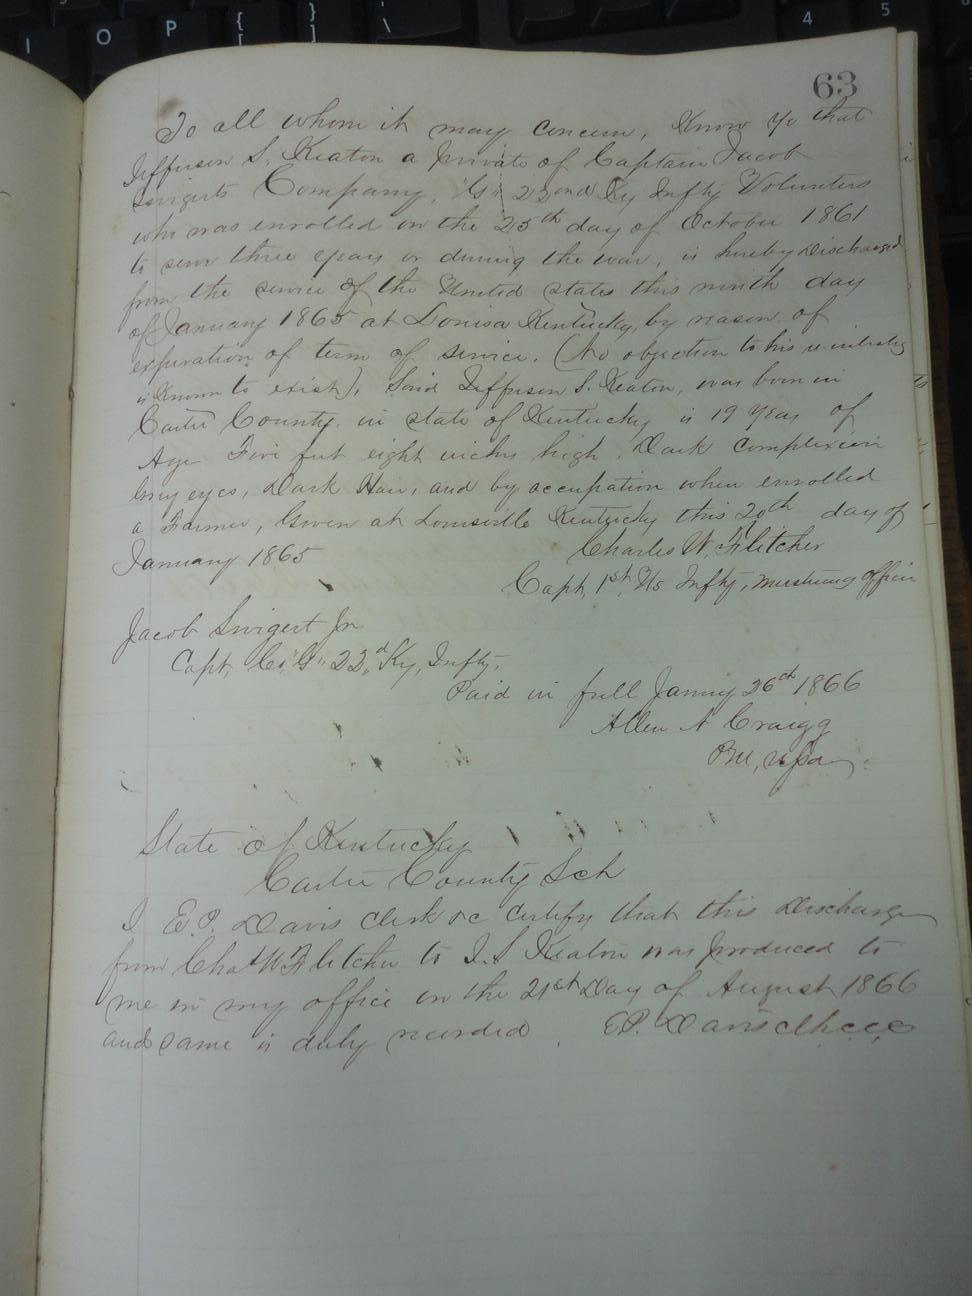 63
To all whom it may concern, Know Ye that
Jefferson S. Keaton a private of Captain Jacob
Swigerts Company, "G" 22nd Ky Infty Volunters
who was enrolled on the 25th day of October 1861
to serve three years or during the war, is hereby Discharged
from the service of the United states this ninth day
of January 1865 at Louisa Kentucky, by reason of
expiration of term of service. (No objection to his re-
is Known to exist), Said Jefferson S. Keaton, was born in
Carter County, in state of Kentucky is 19 Years of
Age Five feet eight inches high, Dark complexion
Grey eyes, Dark Hair, and by occupation when enrolled
a Farmer, Given at Louisville Kentucky this 20th day of
January 1865
Charles W. Fletcher
Capt, 1st, Us Infty, mustering officer
Jacob Swigert Jr
Capt, Co, "G" 22nd Ky, Infty,
Paid in full Janny 26th 1866
Allen A Craigg
State of Kentucky
Carter County Sch
I E.P. Davis clerk &c certify, that this Discharge
from Chas W Fletcher to J. S Keaton was produced to
me in my office on the 21st Day of August 1866
and same is duly recorded E.P. Davis
O P { [ } ] | \ 4 5